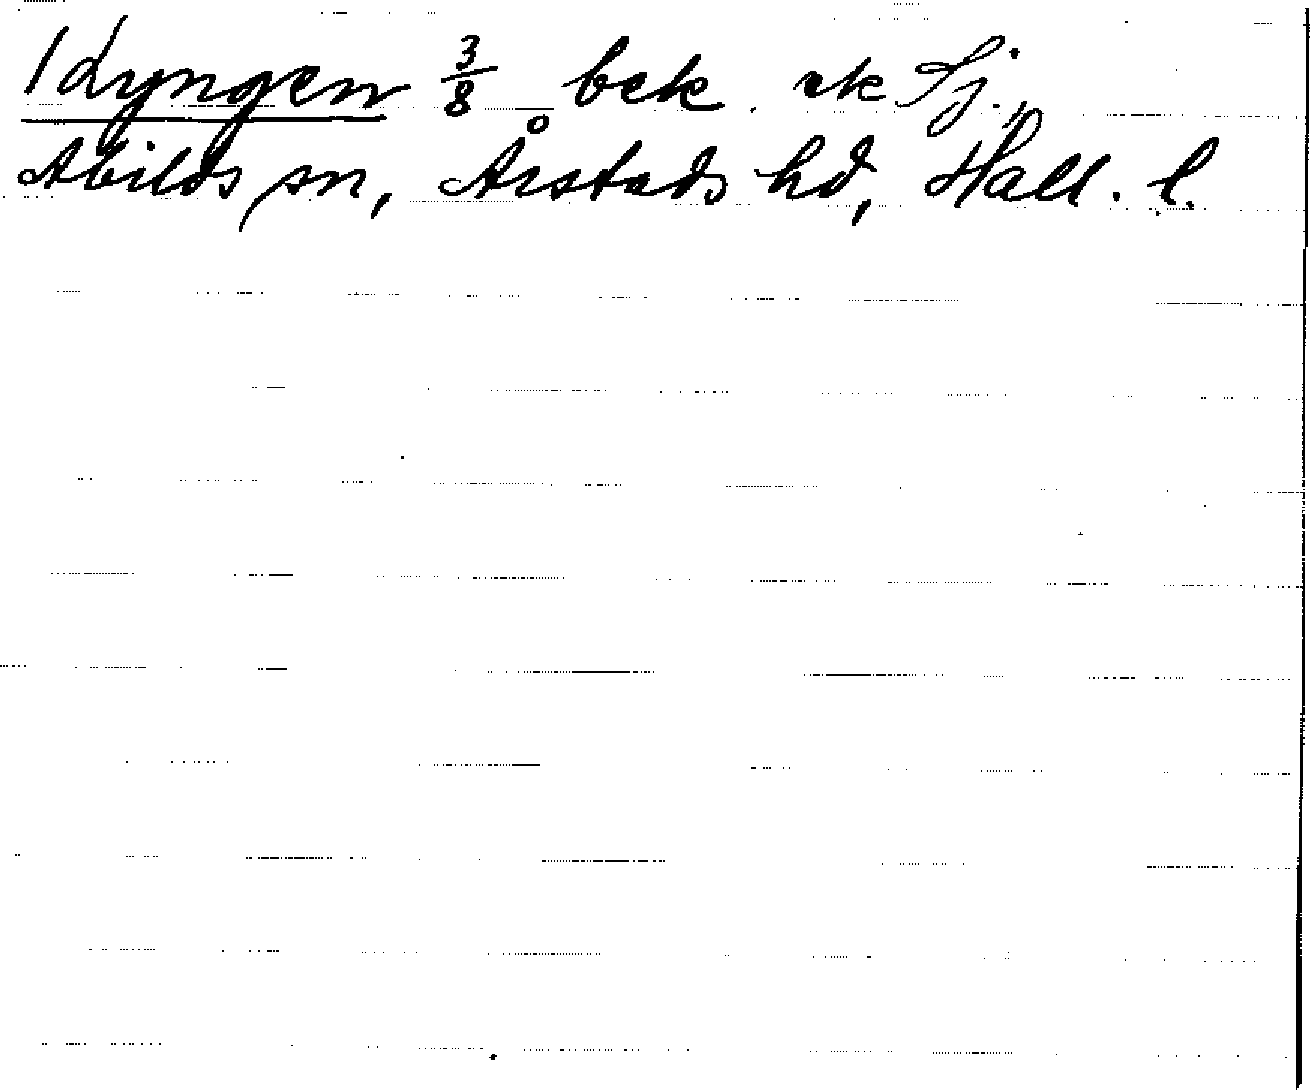 Idyngen 3/8 bek. rk Sj.,
Abilds sn, Årstads hd, Hall. l.